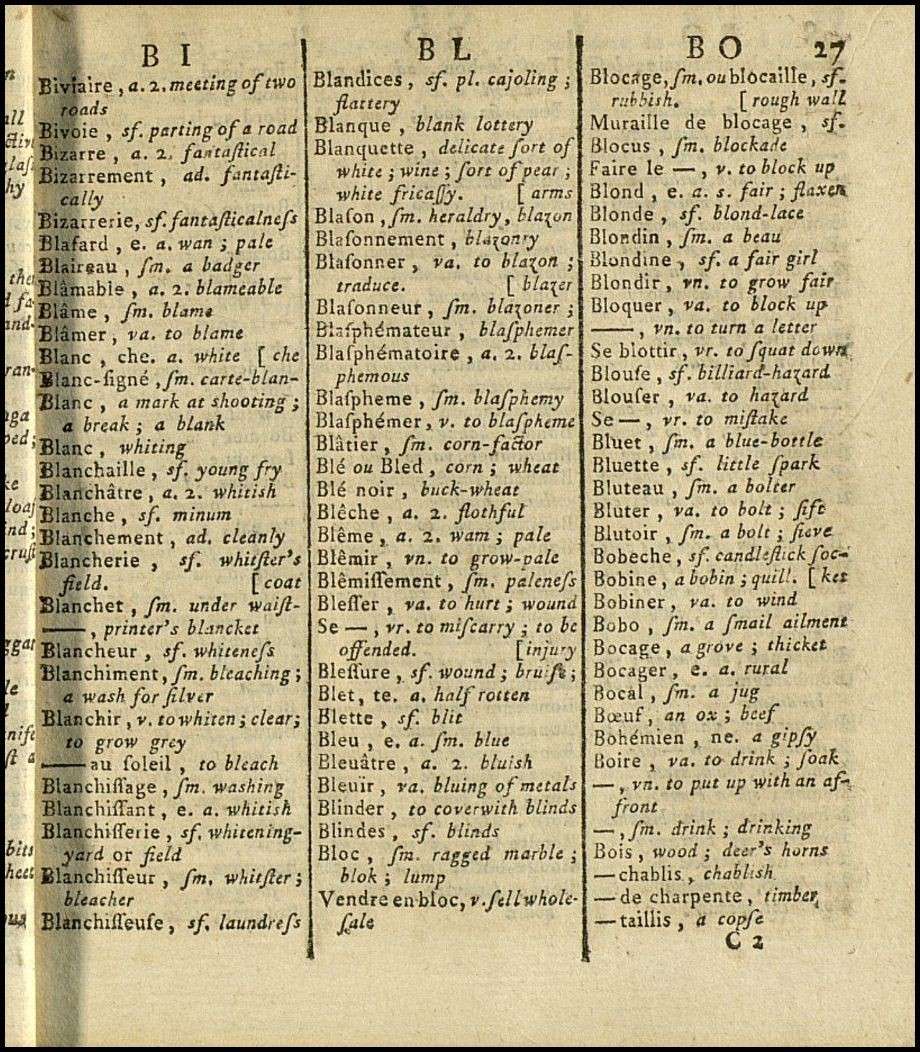 B I
Biviaire, a. 2. meeting of two
roads
Bivoie, sf. parting of a road
Bizarre, a. 2. fantaſtical
Bizarrement, ad. fantaſti-
cally
Bizarrerie, sf. fantaſticalneſs
Blafard, e. a. wan ; pale
Blaireau, ſm. a badger
Blâmable, a. 2. blameable
Blâme, ſm. blame
Blâmer, va. to blame
Blanc, che. a. white [ che
Blanc-ſigné, ſm. carte-blan-
Blanc, a mark at shooting ;
a break ; a blank
Blanc, whiting
Blanchaille, sf. young fry
Blanchâtre, a. 2. whitish
Blanche, sf. minum
Blanchement, ad. cleanly
Blancherie, sf. whitſter's
field. [ coat
Blanchet, ſm. under waiſt-
——, printer's blancket
Blancheur, sf. whiteneſs
Blanchiment, ſm. bleaching ;
a wash for ſilver
Blanchir, v. to whiten ; clear ;
to grow grey
—— au ſoleil, to bleach
Blanchiſſage, ſm. washing
Blanchiſſant, e. a. whitish
Blanchiſſerie, sf. whitening-
yard or field
Blanchiſſeur, ſm. whitſter ;
bleacher
Blanchiſſeuſe, sf. laundreſs
B L
Blandices, sf. pl. cajoling ;
flattery
Blanque, blank lottery
Blanquette, delicate ſort of
white ; wine ; ſort of pear ;
white fricaſſy. [ arms
Blaſon, ſm. heraldry, blazon
Blaſonnement, blazonry
Blaſonner, va. to blazon ;
traduce. [ blazer
Blaſonneur, ſm. blazoner ;
Blaſphémateur, blaſphemer
Blaſphématoire, a. 2. blaſ-
phemous
Blaſpheme, ſm. blaſphemy
Blaſphémer, v. to blaſpheme
Blâtier, ſm. corn-factor
Blé ou Bled, corn ; wheat
Blé noir, buck-wheat
Blêche, a. 2. ſlothful
Blême, a. 2. wam ; pale
Blêmir, vn. to grow-pale
Blêmiſſement, ſm. paleneſs
Bleſſer, va. to hurt ; wound
Se —, vr. to miſcarry ; to be
offended. [injury
Bleſſure, sf. wound ; bruiſe ;
Blet, te. a. half rotten
Blette, sf. blit
Bleu, e. a. ſm. blue
Bleuâtre, a. 2. bluish
Bleuir, va. bluing of metals
Blinder, to coverwith blinds
Blindes, sf. blinds
Bloc, ſm. ragged marble ;
blok ; lump
Vendre en bloc, v. ſell whole-
ſale
B O 27
Blocage, ſm. ou blocaille, sf.
rubbish. [ rough wall
Muraille de blocage, sf.
Blocus, ſm. blockade
Faire le —, v. to block up
Blond, e. a. s. fair ; flaxen
Blonde, sf. blond-lace
Blondin, ſm. a beau
Blondine, sf. a fair girl
Blondir, vn. to grow fair
Bloquer, va. to block up
——, vn. to turn a letter
Se blottir, vr. to ſquat down
Blouſe, sf. billiard-hazard
Blouſer, va. to hazard
Se —, vr. to miſtake
Bluet, ſm. a blue-bottle
Bluette, sf. little ſpark
Bluteau, ſm. a bolter
Bluter, va. to bolt ; ſift
Blutoir, ſm. a bolt ; ſieve
Bobeche, sf. candleſtick ſoc-
Bobine, a bobin ; quill. [ ket
Bobiner, va. to wind
Bobo, ſm. a ſmail ailment
Bocage, a grove ; thicket
Bocager, e. a. rural
Bocal, ſm. a jug
Bœuf, an ox ; beef
Bohémien, ne. a gipſy
Boire, va. to drink ; ſoak
—, vn. to put up with an af-
front
—, ſm. drink ; drinking
Bois, wood ; deer's horns
— chablis, chablish
— de charpente, timber
— taillis, a copſe
C 2